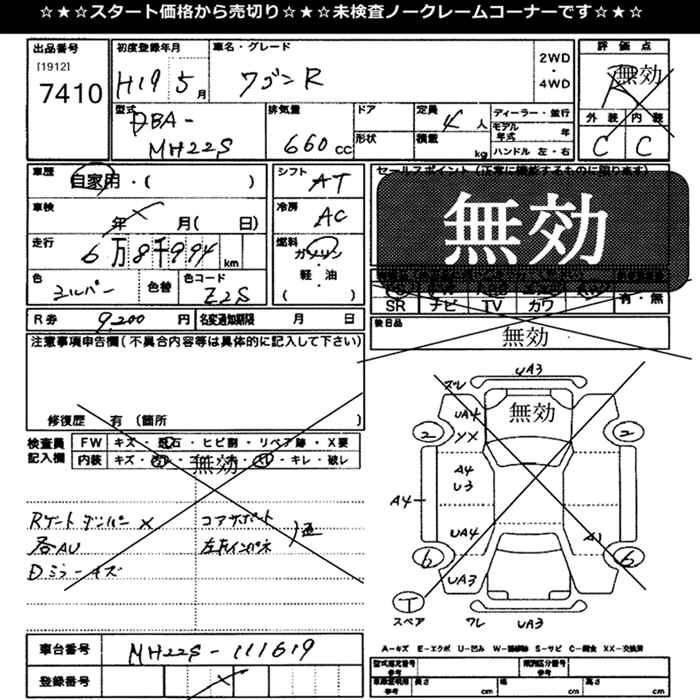 ☆★☆★スタート価格から売切り☆★☆★未検査ノークレームコーナーです☆★☆
出品番号 初度登録年月 車名・グレード 評価点
[1912] 2WD
7410 H19 5月 ワゴンR ・ 無効
4WD
型式 排気量 ドア 定員 ディーラー・並行 外装 内装
DBA- 4人 モデル年式 年
MH22S 660cc 形状 積載 kg ハンドル 左・右 C C
車歴 自家用・( ) シフト AT セールスポイント(正常に機能するものに限ります)
車検 年 月( 日) 冷房 AC 無効
走行 6万8千994km 燃料 ガソリン
色 シルバー 色替 色コード Z2S 軽・油
( ) SR ナビ TV カワ 有・無
R券 9200円 名変通知期限 月 日 後日品 無効
注意事項申告欄(不具合内容等は具体的に記入して下さい)
修復歴 有 (箇所 )
検査員 FW キズ・飛石・ヒビ割・リペア跡・X要
記入欄 内装 キズ・ ・キレ・破レ
無効
Rゲートダンパー X コアサポート
各AU 左右インパネ
Dミラーキズ
車台番号 MH22S-111619
登録番号
UA3
ズレ
UA4 無効
XX
2 2
A4
U3
A4 A1
UA4
6 6
UA3
T
スペア ワレ UA3
A-キズ E-エクボ U-凹み W-補修跡 S-サビ C-腐食 XX-交換済
型式指定番号 類別区分番号
参考 参考
車庫証明用 長さ 幅 高さ
参考 cm cm cm